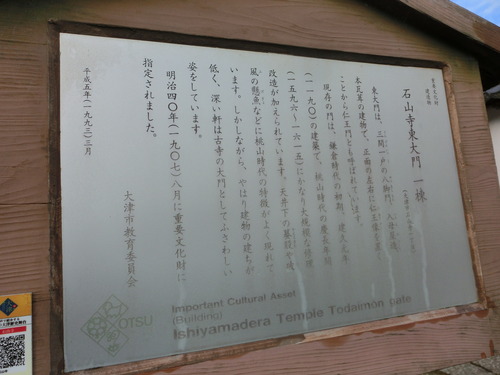 重要文化財
建造物
石山寺東大門 一棟
東大門は、三間一戸の八脚門、入母屋造、
本瓦葺の建物で、正面の左右に仁王像を置く
ことから仁王門とも呼ばれています。
現存の門は、鎌倉時代の初期、建久元年
(一一九〇)の建築で、桃山時代の慶長年間
(一五九六~一六一五)にかなり大規模な修理
改造が加えられています。天井下の蟇股や破
風の懸魚などに桃山時代の特徴がよく現れて
います。しかしながら、やはり建物の建ちが
低く、深い軒は古寺の大門としてふさわしい
姿をしています。
明治四〇年(一九〇七)八月に重要文化財に
指定されました。
大津市教育委員会
平成五年(一九九三)三月
OTSU
Important Cultural Asset
(Building)
Ishiyamadera Temple Todaimon gate